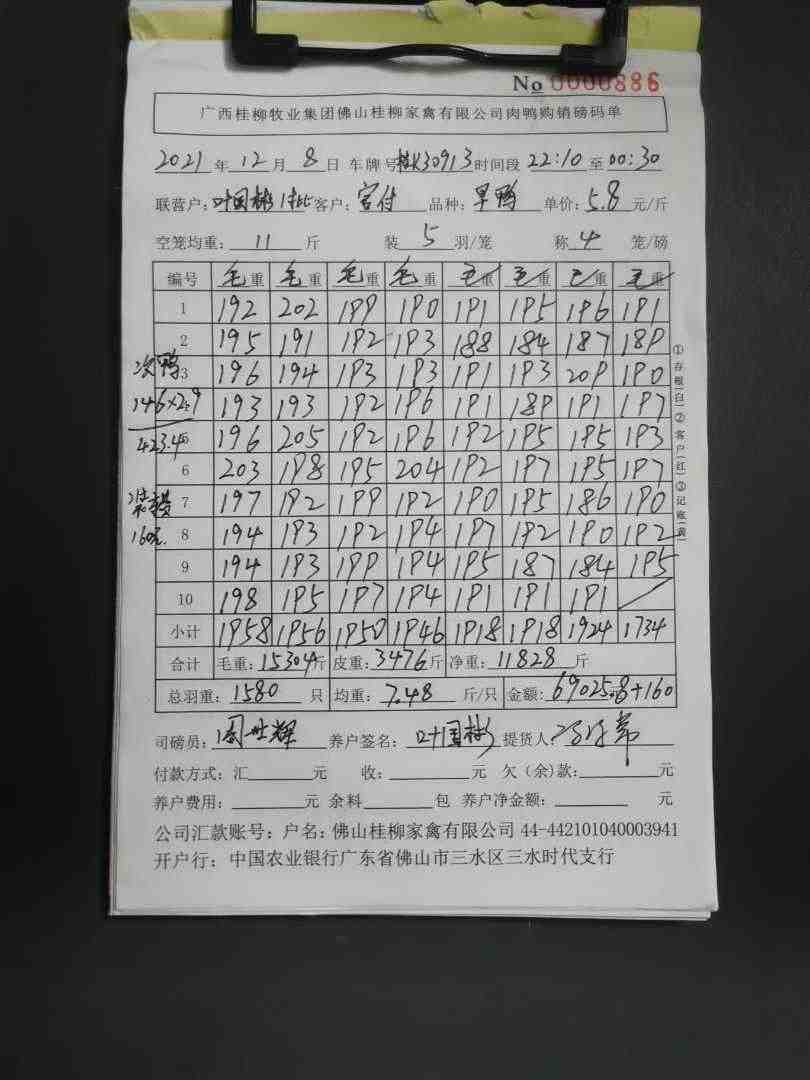 No 0000886
广西桂柳牧业集团佛山桂柳家禽有限公司肉鸭购销磅码单
2021 年 12 月 8 日 车牌号 桂K30913 时间段 22:10 至 00:30
联营户: 叶国彬 客户: 品种: 旱鸭 单价: 5.8 元/斤
空笼均重: 11 斤 装 5 羽/笼 称 4 笼/磅
编号 毛重 毛重 毛重 毛重 毛重 毛重 毛重 毛重
1 192 202 199 190 191 195 196 191
2 195 191 192 193 188 184 187 189
次鸭 3 196 194 193 193 191 193 209 190
146×2.9 193 193 192 196 191 189 191 197
423.4 196 205 192 196 192 195 195 193
6 203 198 195 204 192 197 195 197
7 197 192 199 192 190 195 186 190
160元 8 194 193 192 194 197 192 190 192
9 194 193 199 194 195 187 184 195
10 198 195 197 194 191 191 191 /
小计 1958 1956 1950 1946 1918 1918 1924 1734
合计 毛重: 15304 斤 皮重: 3476 斤 净重: 11828 斤
总羽重: 1580 只 均重: 7.48 斤/只 金额: 69025.8+160
①存根(白)②客户(红)③记账(黄)
司磅员: 周世辉 养户签名: 叶国彬 提货人:
付款方式: 汇 元 收: 元 欠(余)款: 元
养户费用: 元 余料 包 养户净金额: 元
公司汇款账号: 户名: 佛山桂柳家禽有限公司 44-442101040003941
开户行: 中国农业银行广东省佛山市三水区三水时代支行